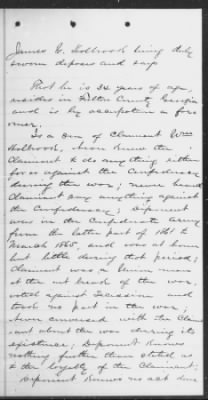 James N. Holbrook being duly
sworn deposes and says
That he is 34 years of age,
resides in Fulton County Georgia
and is by occupation a far
mer.
Is a son of Claimant Wm
Holbrook, never knew the
Claimant to do any thing either
for or against the Confederacy
during the war; never heard
Claimant say anything against
the Confederacy; Deponent
was in the Confederate Army
from the latter part of 1861 to
March 1865, and was at home
but little during that period;
Claimant was a Union man
at the out break of the war,
voted against Secession and
took no part in the war;
never conversed with the Claim
ant about the war during its
existence; Deponent knows
nothing further than stated as
to the loyalty of the Claimant;
Deponent knows no act done